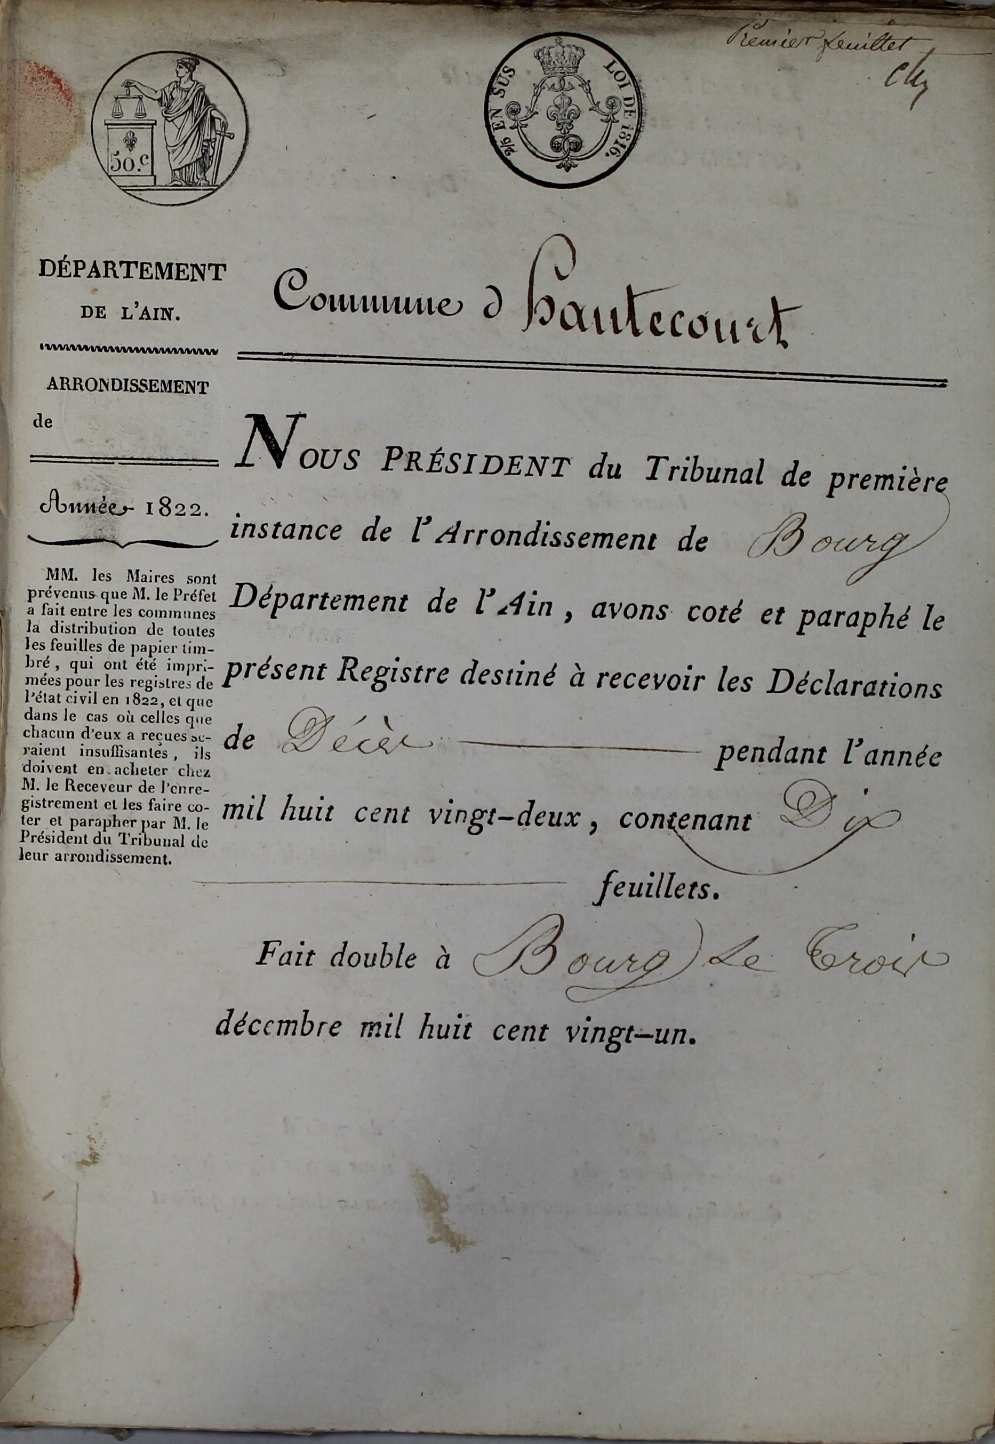 Premier feuillet
50.c
2/5 EN SUS LOI DE 1816.
DÉPARTEMENT
DE L'AIN.
ARRONDISSEMENT
de
Année 1822.
MM. les Maires sont
prévenus que M. le Préfet
a fait entre les communes
la distribution de toutes
les feuilles de papier tim-
bré, qui ont été impri-
mées pour les registres de
l'état civil en 1822, et que
dans le cas où celles que
chacun d'eux a reçues se-
raient insuffisantes, ils
doivent en acheter chez
M. le Receveur de l'enre-
gistrement et les faire co-
ter et parapher par M. le
Président du Tribunal de
leur arrondissement.
Commune d'hautecourt
NOUS PRÉSIDENT du Tribunal de première
instance de l'Arrondissement de Bourg
Département de l'Ain, avons coté et paraphé le
présent Registre destiné à recevoir les Déclarations
de Décès pendant l'année
mil huit cent vingt-deux, contenant Dix
feuillets.
Fait double à Bourg Le Trois
décembre mil huit cent vingt-un.